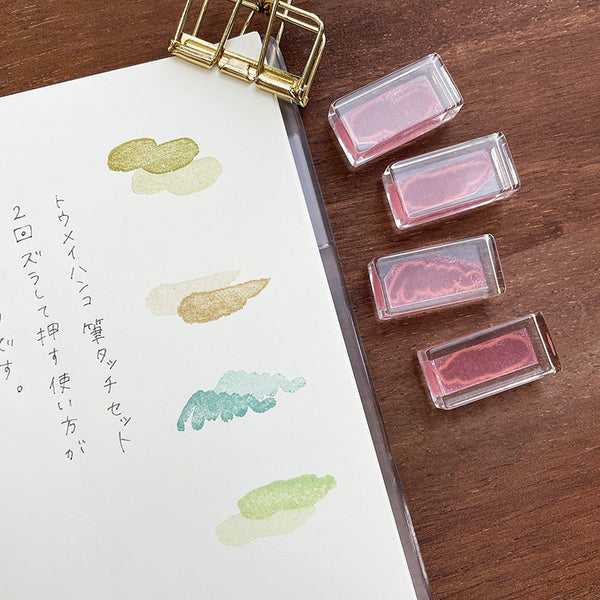 トウメイハンコ 筆タッチセット
2回ズラして押す使い方が
です。